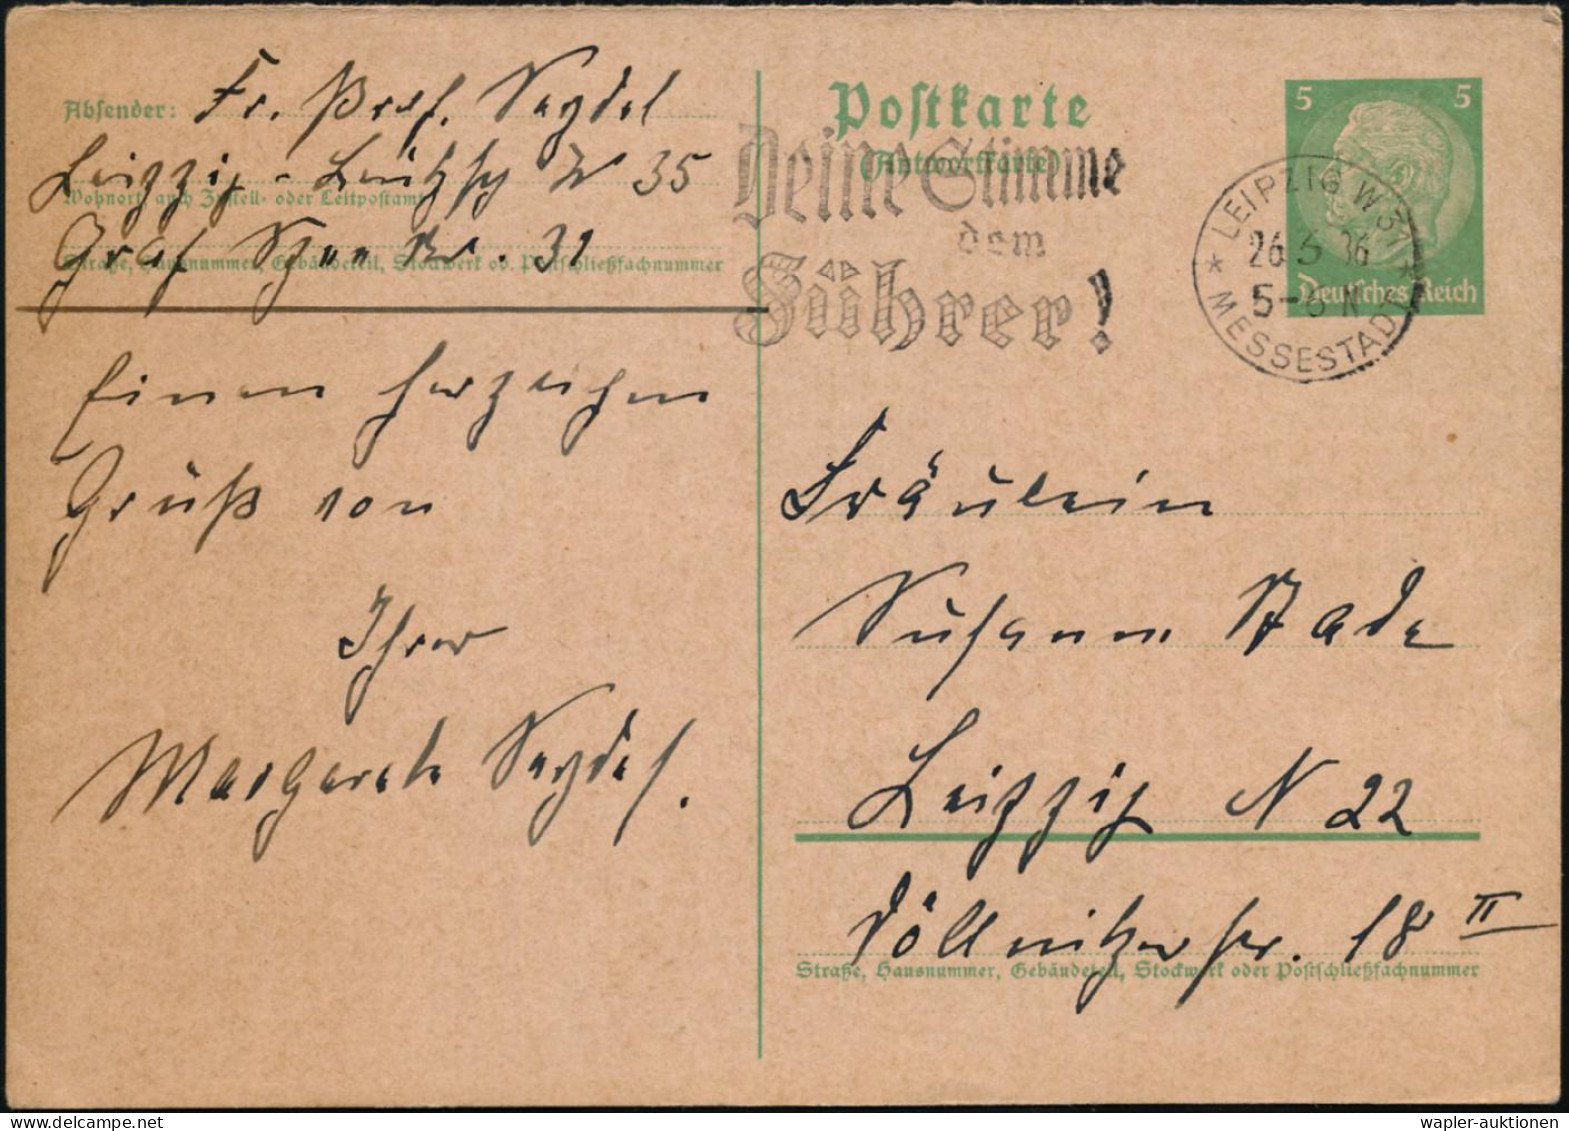 Absender: Fr. Prof. Seydel
Leipzig - Leutzsch W 35
Wohnort, auch Zustell- oder Leitpostamt
Graf Spee Str. 31
Straße, Hausnummer, Gebäudeteil, Stockwerk od. Postschließfachnummer
Einen herzlichen
Gruß von
Ihrer
Margarete Seydel.
Postkarte
(Antwortkarte)
Deine Stimme
dem
Führer!
5 5
Deutsches Reich
LEIPZIG W 31
26 3 36
5-6 N
* MESSESTADT *
Fräulein
Susanne Stade
Leipzig N 22
Döllnitzerstr. 18 II
Straße, Hausnummer, Gebäudeteil, Stockwerk oder Postschließfachnummer
wapler-auktionen